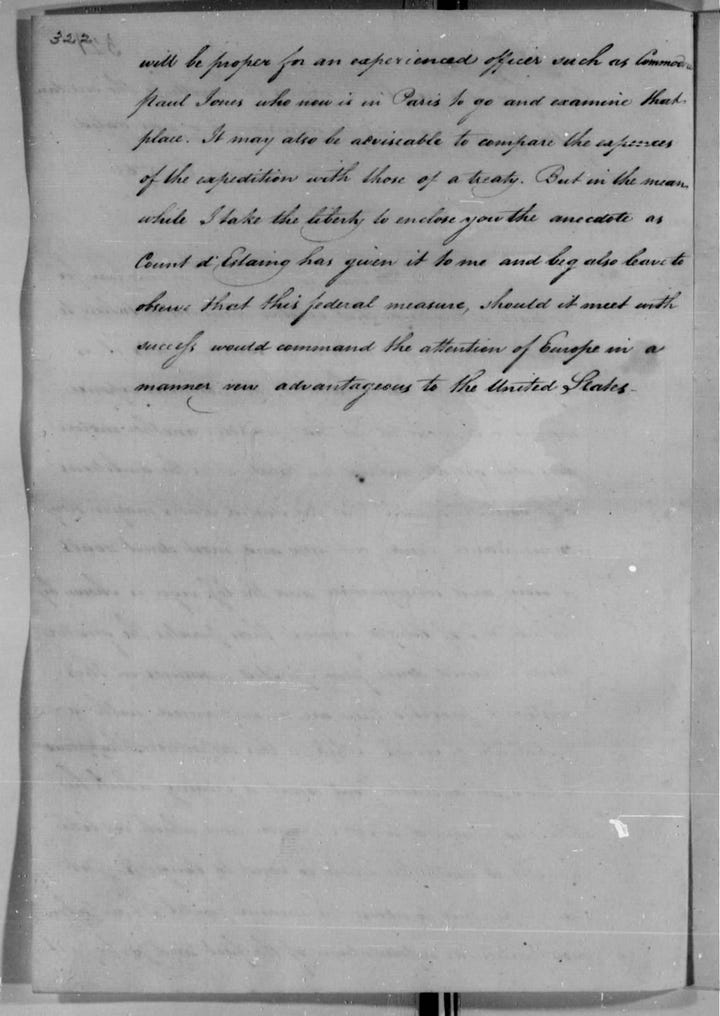 322
will be proper for an experienced officer such as Commodore
Paul Jones who now is in Paris to go and examine that
place. It may also be adviseable to compare the expences
of the expedition with those of a treaty. But in the mean
while I take the liberty to enclose you the anecdote as
Count d'Estaing has given it to me and beg also leave to
observe that this federal measure, should it meet with
success would command the attention of Europe in a
manner very advantageous to the United States.